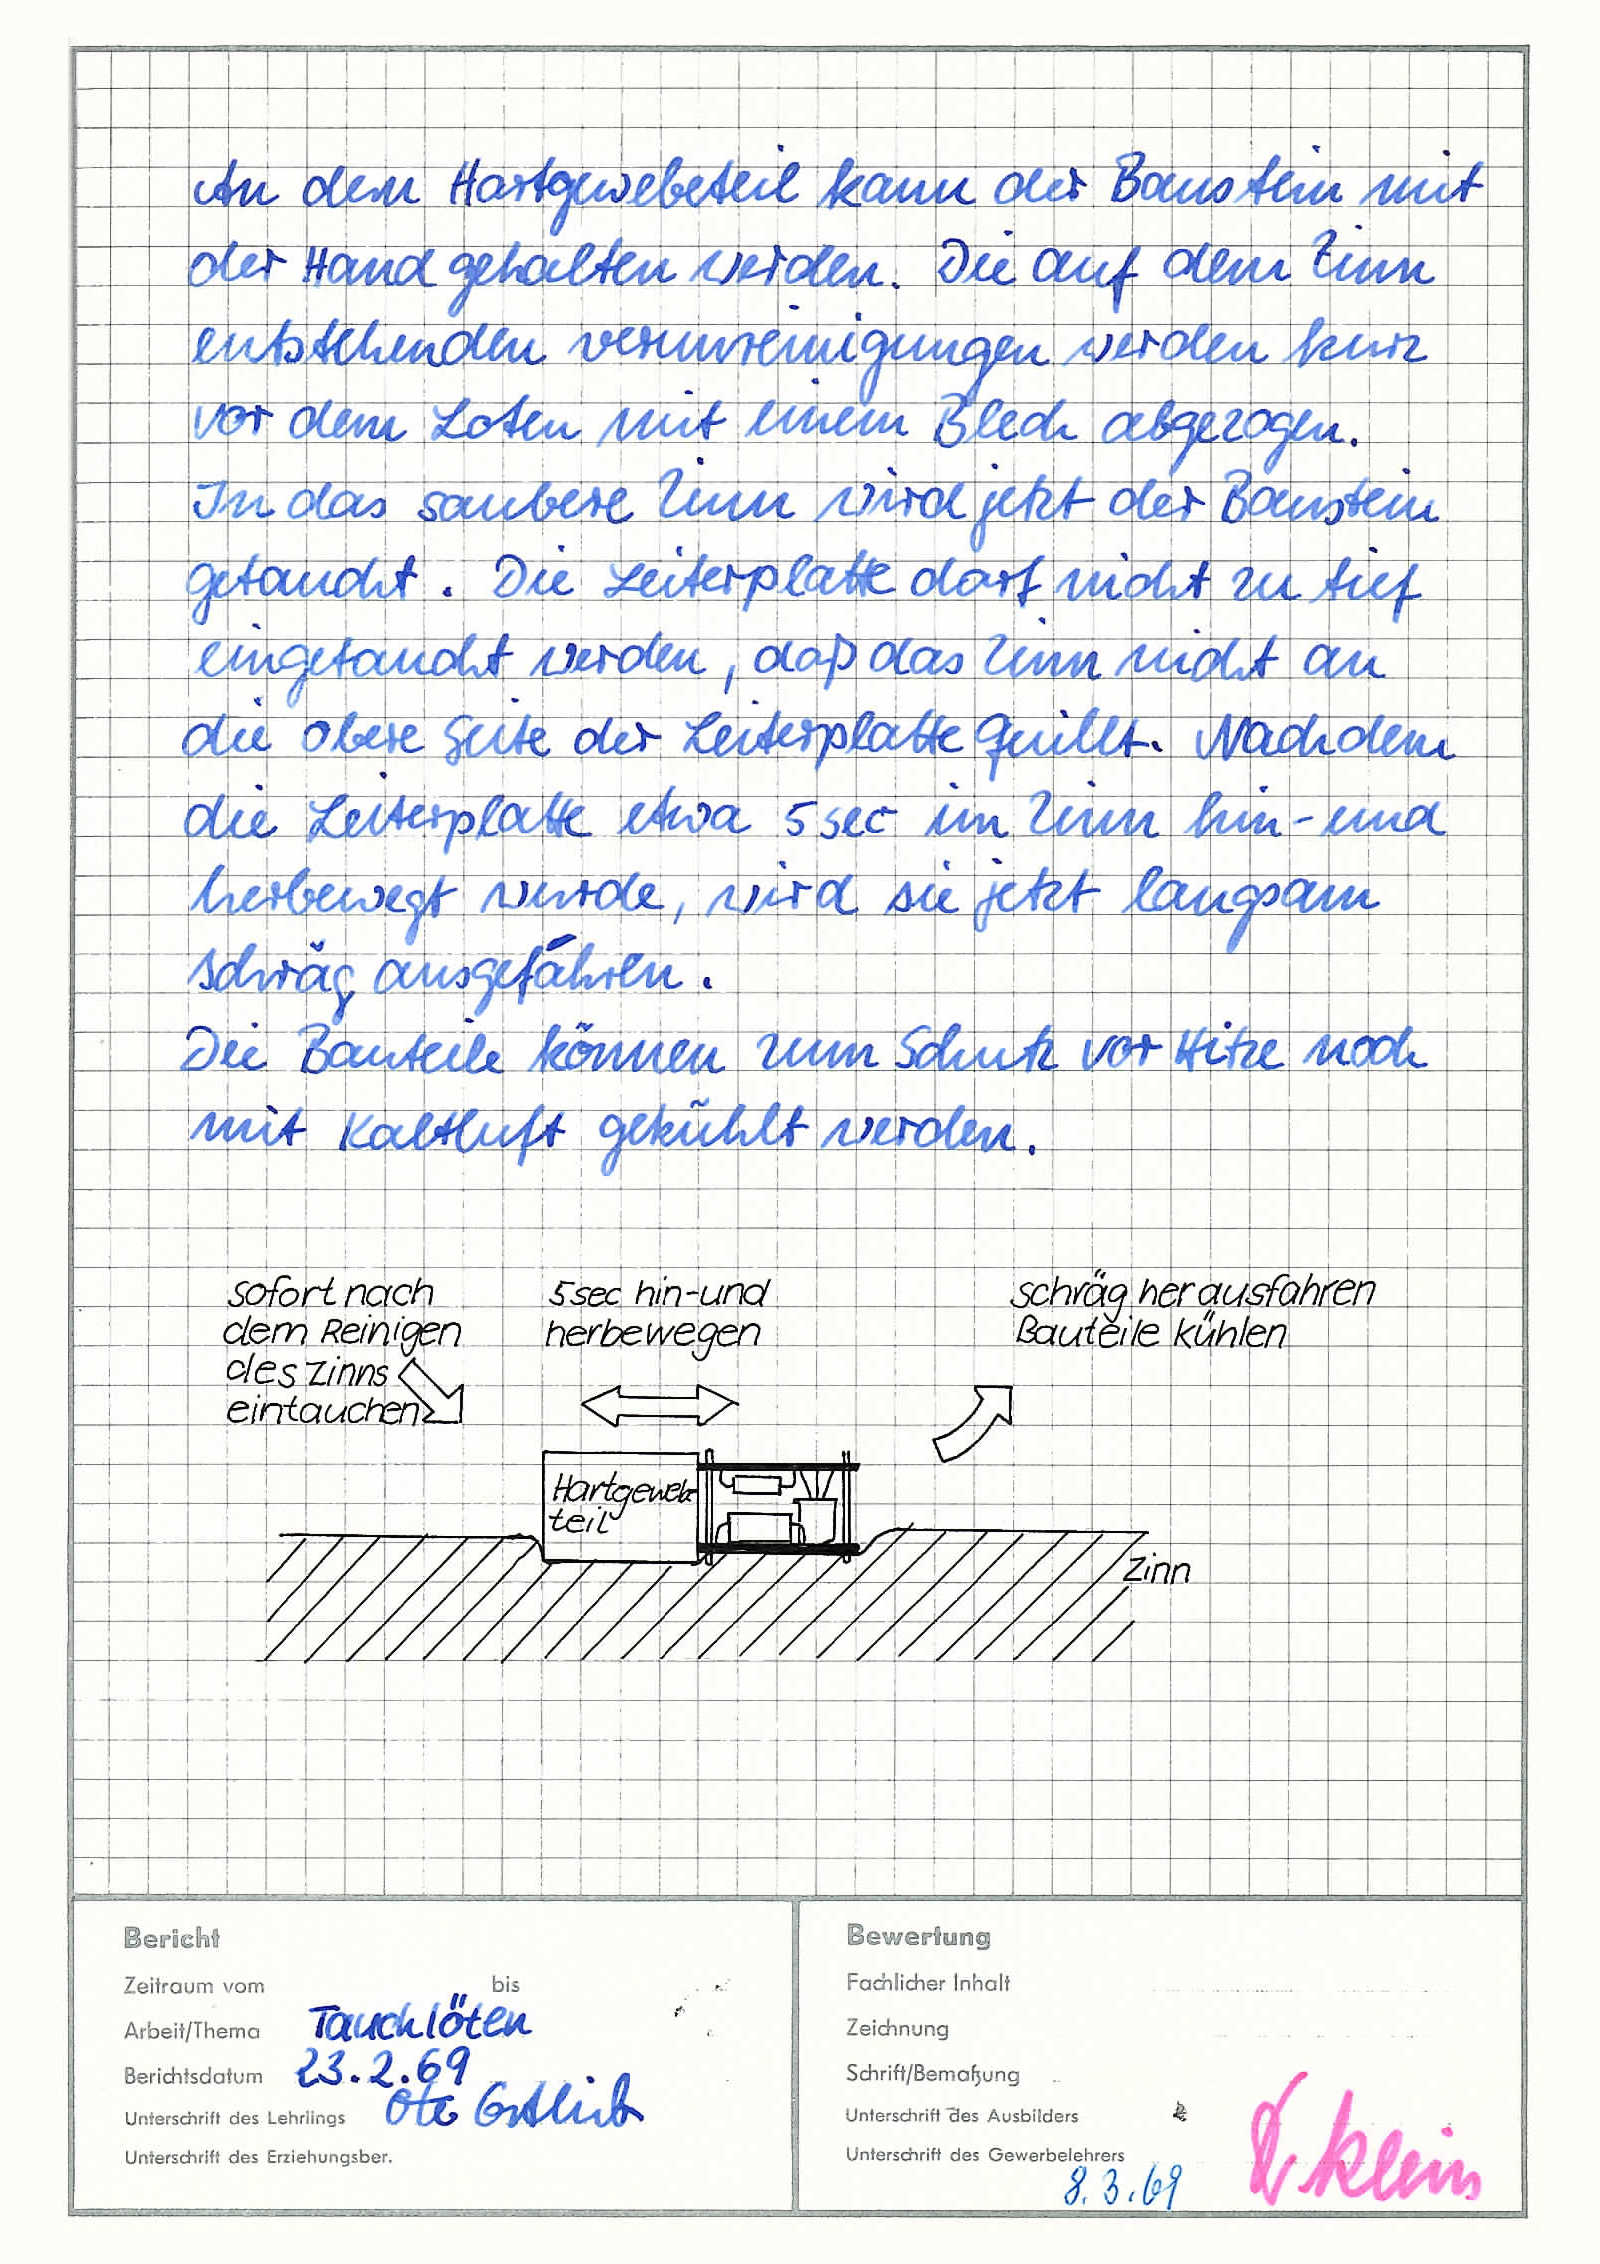 An dem Hartgewebeteil kann der Baustein mit
der Hand gehalten werden. Die auf dem Zinn
entstehenden verunreinigungen werden kurz
vor dem Loten mit einem Blech abgezogen.
In das saubere Zinn wird jetzt der Baustein
getaucht. Die Leiterplatte darf nicht zu tief
eingetaucht werden, daß das Zinn nicht an
die obere Seite der Leiterplatte quillt. Nachdem
die Leiterplatte etwa 5 sec im Zinn hin- und
herbewegt wurde, wird sie jetzt langsam
schräg ausgefahren.
Die Bauteile können zum Schutz vor Hitze noch
mit Kaltluft gekühlt werden.
sofort nach
dem Reinigen
des Zinns
eintauchen
5sec hin-und
herbewegen
schräg herausfahren
Bauteile kühlen
Hartgewebe
teil
Zinn
Bericht
Zeitraum vom bis
Arbeit/Thema Tauchlöten
Berichtsdatum 23.2.69
Unterschrift des Lehrlings
Unterschrift des Erziehungsber.
Bewertung
Fachlicher Inhalt
Zeichnung
Schrift/Bemaßung
Unterschrift des Ausbilders
Unterschrift des Gewerbelehrers
8.3.69 Klein